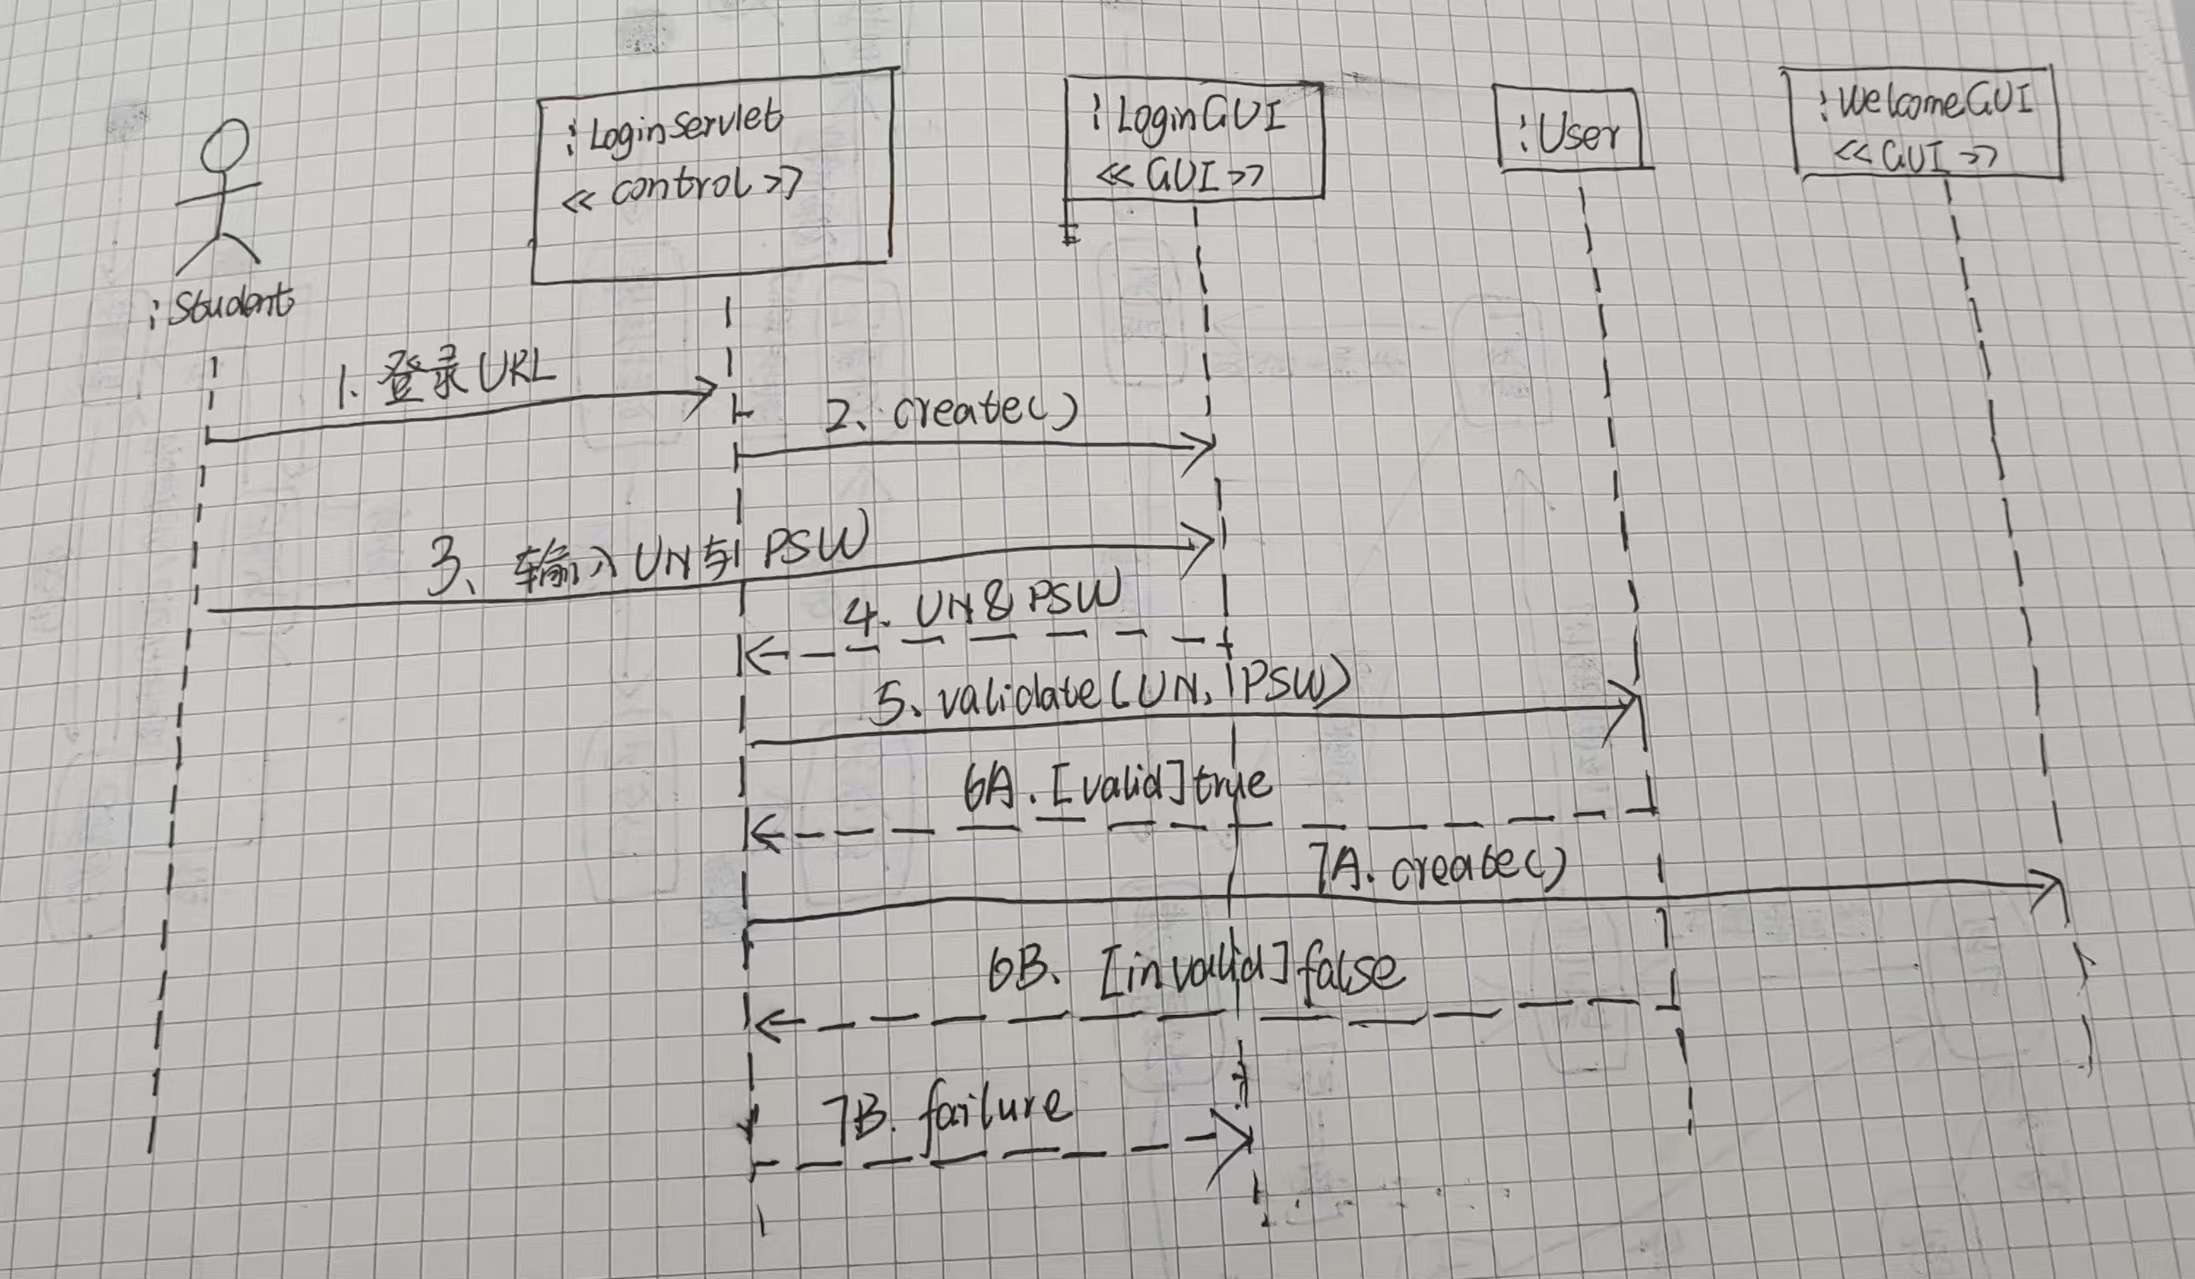 :Student
:LoginServlet
<< control >>
:LoginGUI
<< GUI >>
:User
:WelcomeGUI
<< GUI >>
1. 登录URL
2、create()
3、输入UN与PSW
4. UN&PSW
5、validate(UN, PSW)
6A. [valid]true
7A. create()
6B、[invalid]false
7B. failure